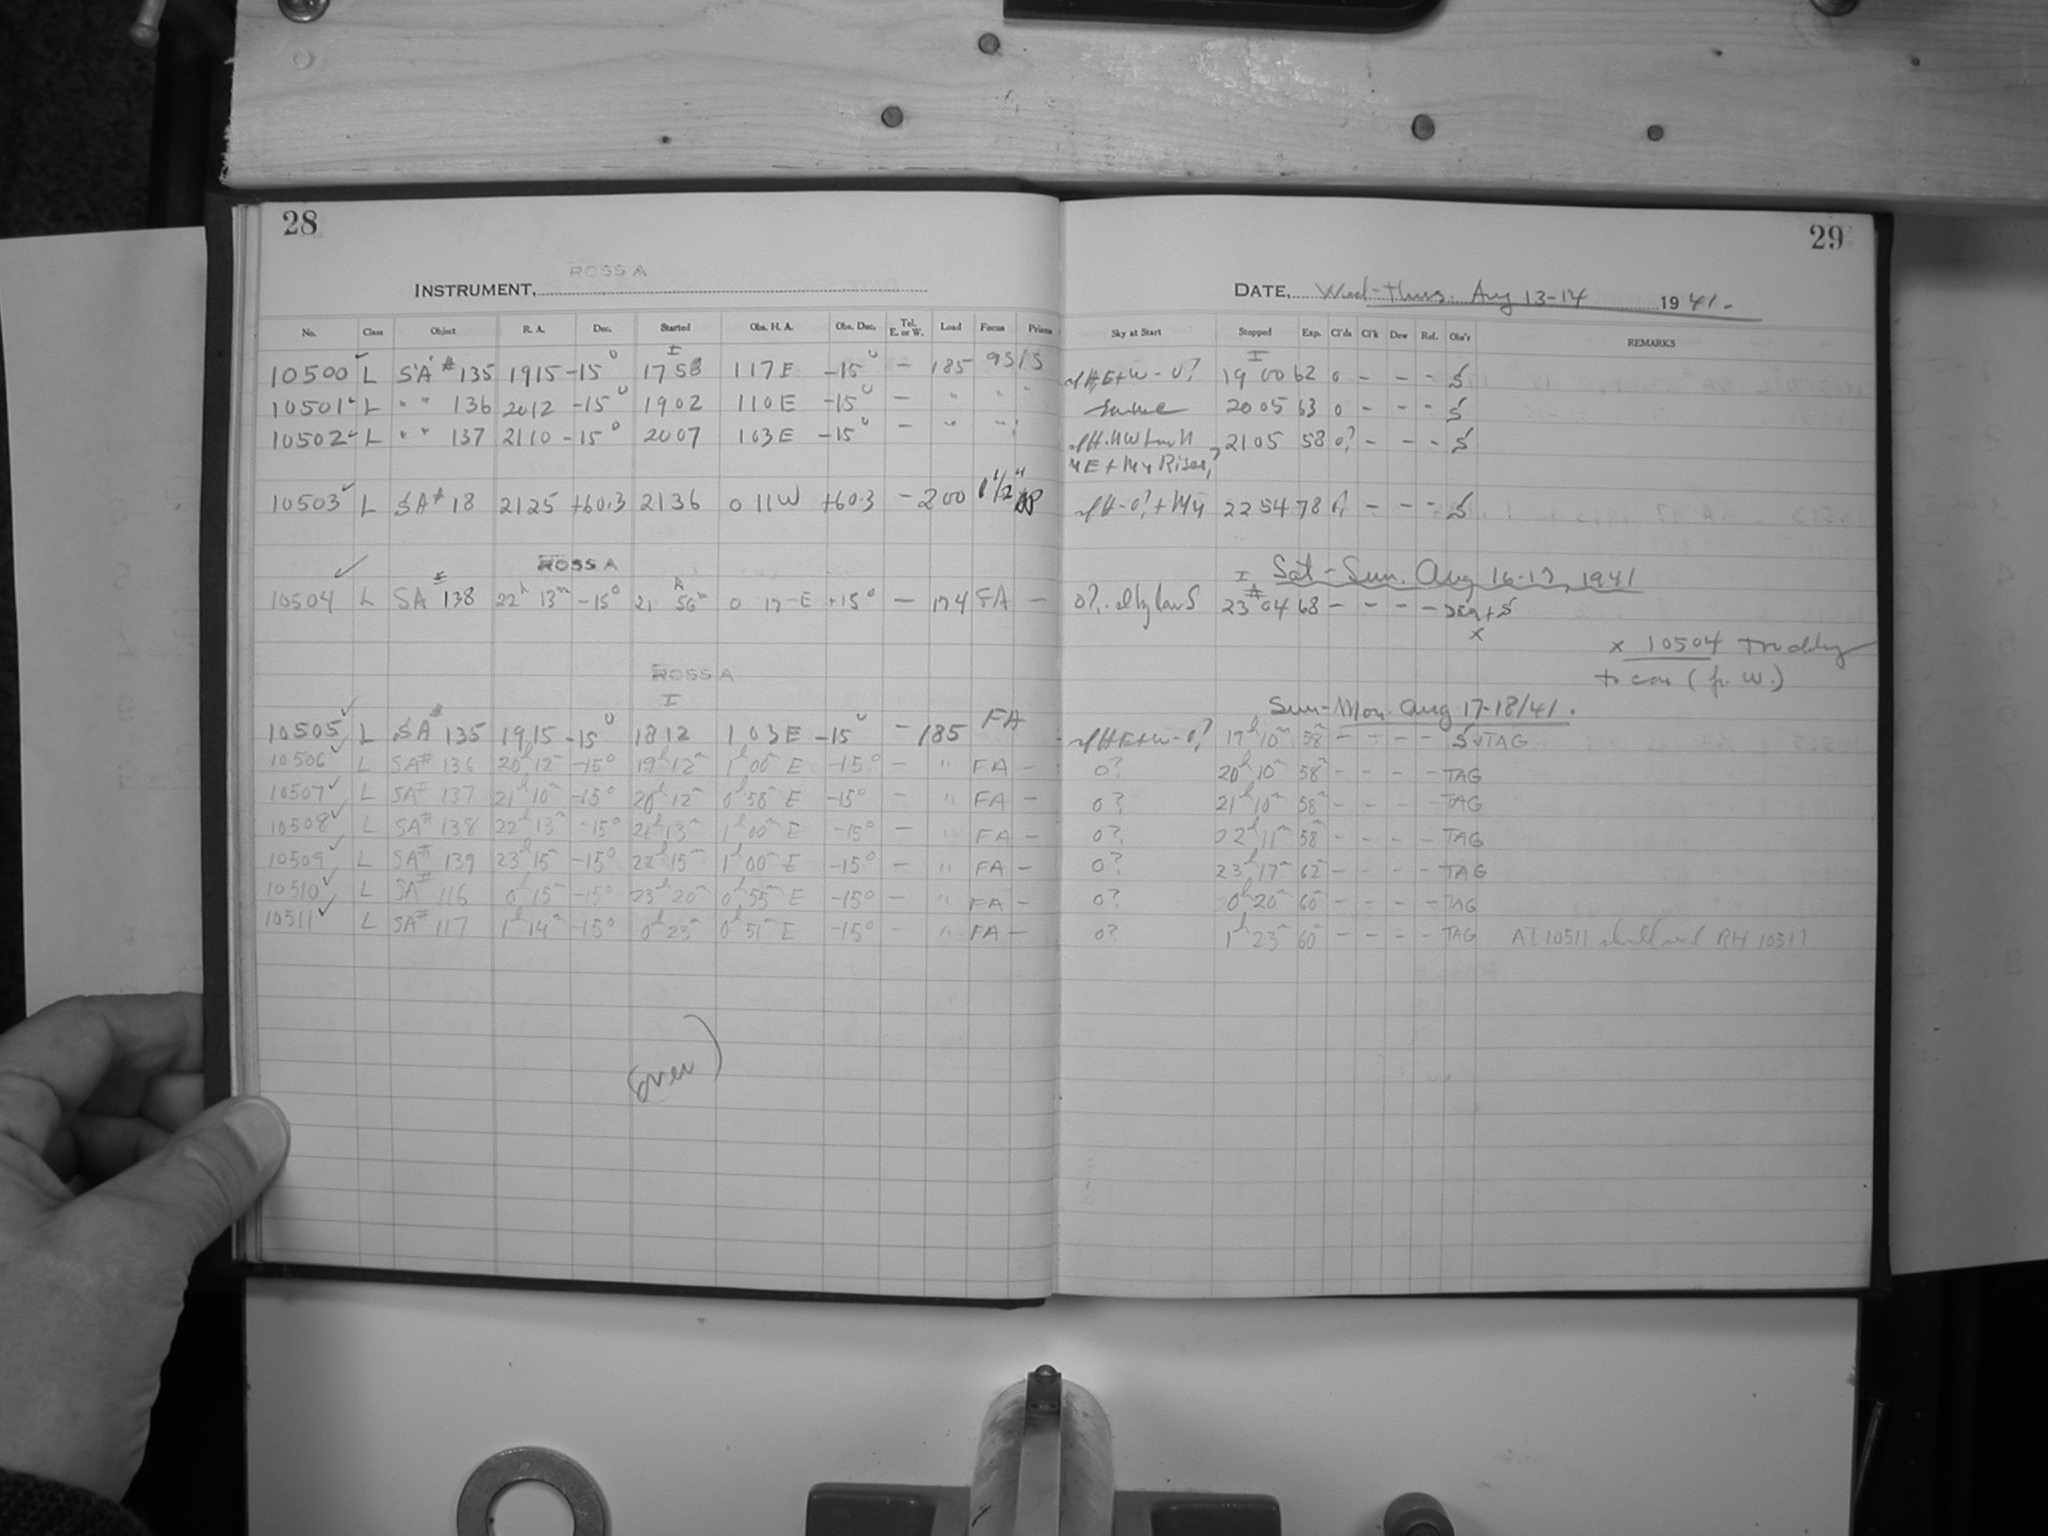 28
29
ROSS A
INSTRUMENT,
DATE, Wed-Thurs. Aug 13-14 1941.
No. Class Object R. A. Dec. Started Obs. H. A. Obs. Dec. Tel. E. or W. Load Focus Prisms Sky at Start Stopped Exp. Cl'ds Cl'k Dew Ref. Obs'r REMARKS
I I
10500 ✓ L SA # 135 1915 -15° 1758 117E -15° - 185 1900 62 0 - - - S
10501 ✓ L " " 136 2012 -15° 1902 110E -15° - " " same 2005 63 0 - - - S
10502 ✓ L " " 137 2110 -15° 2007 103E -15° - " " 2105 58 0? - - - S
10503 ✓ L SA # 18 2125 +60.3 2136 0 11W +60.3 - 200 2254 78 - - - S
ROSS A
Sat-Sun. Aug 16-17, 1941
10504 ✓ L SA # 138 22h 13m -15° 21 56m 0 17 E +15° - 174 FA - 0? 23 04 68 - - - - + S
x
x 10504
to (fr. W.)
ROSS A
I
Sun-Mon. Aug 17-18/41.
10505 ✓ L SA # 135 1915 -15° 1812 103E -15° - 185 FA 19h 10m 58m - - - - S TAG
10506 ✓ L SA# 136 20h 12m -15° 19h 12m 1h 00m E -15° - " FA - 0? 20h 10m 58m - - - - TAG
10507 ✓ L SA# 137 21h 10m -15° 20h 12m 0h 58m E -15° - " FA - 0? 21h 10m 58m - - - - TAG
10508 ✓ L SA# 138 22h 13m -15° 21h 13m 1h 00m E -15° - " FA - 0? 22h 11m 58m - - - - TAG
10509 ✓ L SA# 139 23h 15m -15° 22h 15m 1h 00m E -15° - " FA - 0? 23h 17m 62m - - - - TAG
10510 ✓ L SA# 116 0h 15m -15° 23h 20m 0h 55m E -15° - " FA - 0? 0h 20m 60m - - - - TAG
10511 ✓ L SA# 117 1h 14m -15° 0h 23m 0h 51m E -15° - " FA - 0? 1h 23m 60m - - - - TAG AI 10511 should read RH 10511
(over)